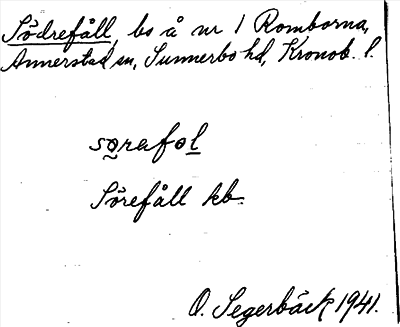 Södrefåll, bs å nr 1 Romborna,
Annerstad sn, Sunnerbo hd, Kronob. l.
sørafo̲l̲
Sörefåll kb
O. Segerbäck 1941.